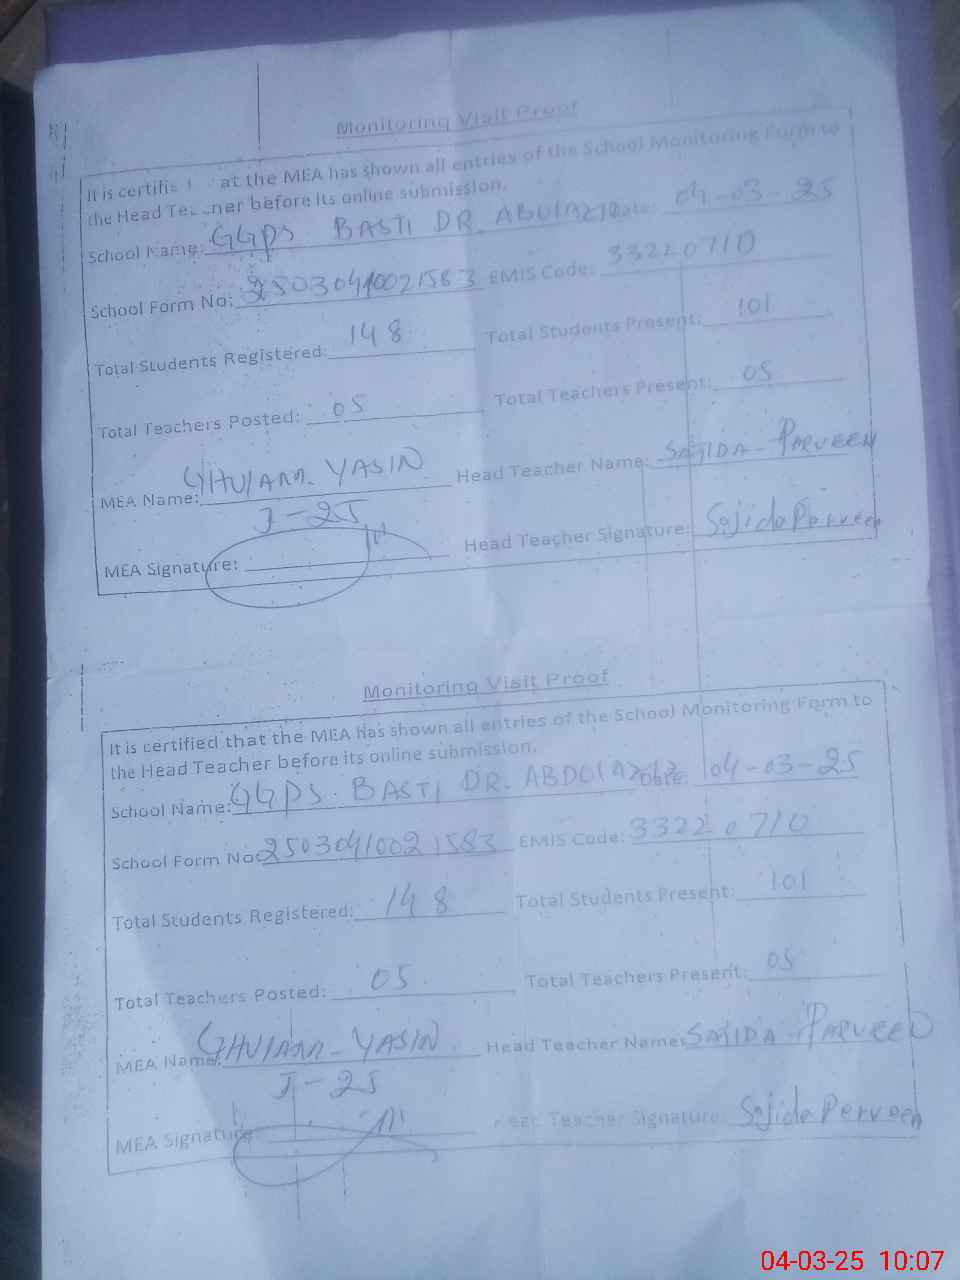 Monitoring Visit Proof
It is certifie at the MEA has shown all entries of the School Monitoring Form to
the Head Te ner before its online submission.
School Name: GGPS BASTI DR ABDUL AZIZ Date: 04-03-25
School Form No: 25030410021583 EMIS Code: 33220710
Total Students Registered: 148 Total Students Present: 101
Total Teachers Posted: 05 Total Teachers Present: 05
MEA Name: GHULAM YASIN Head Teacher Name: SAJIDA - PARVEEN
J-25
MEA Signature: Head Teacher Signature: Sajida Perveen
Monitoring Visit Proof
It is certified that the MEA has shown all entries of the School Monitoring Form to
the Head Teacher before its online submission.
School Name: GGPS BASTI DR. ABDUL AZIZ Date: 04-03-25
School Form No: 25030410021583 EMIS Code: 33220710
Total Students Registered: 148 Total Students Present: 101
Total Teachers Posted: 05 Total Teachers Present: 05
MEA Name: GHULAM - YASIN Head Teacher Name: SAJIDA - PARVEEN
J-25
MEA Signature: Head Teacher Signature: Sajida Perveen
04-03-25 10:07